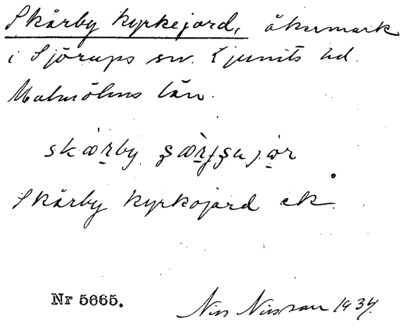 Skårby kyrkejord, åkermark
i Sjörups sn. Ljunits hd.
Malmöhus län.
skårby
Skårby kyrkojord ek.
Nr 5665.
Nils Nilsson 1934.